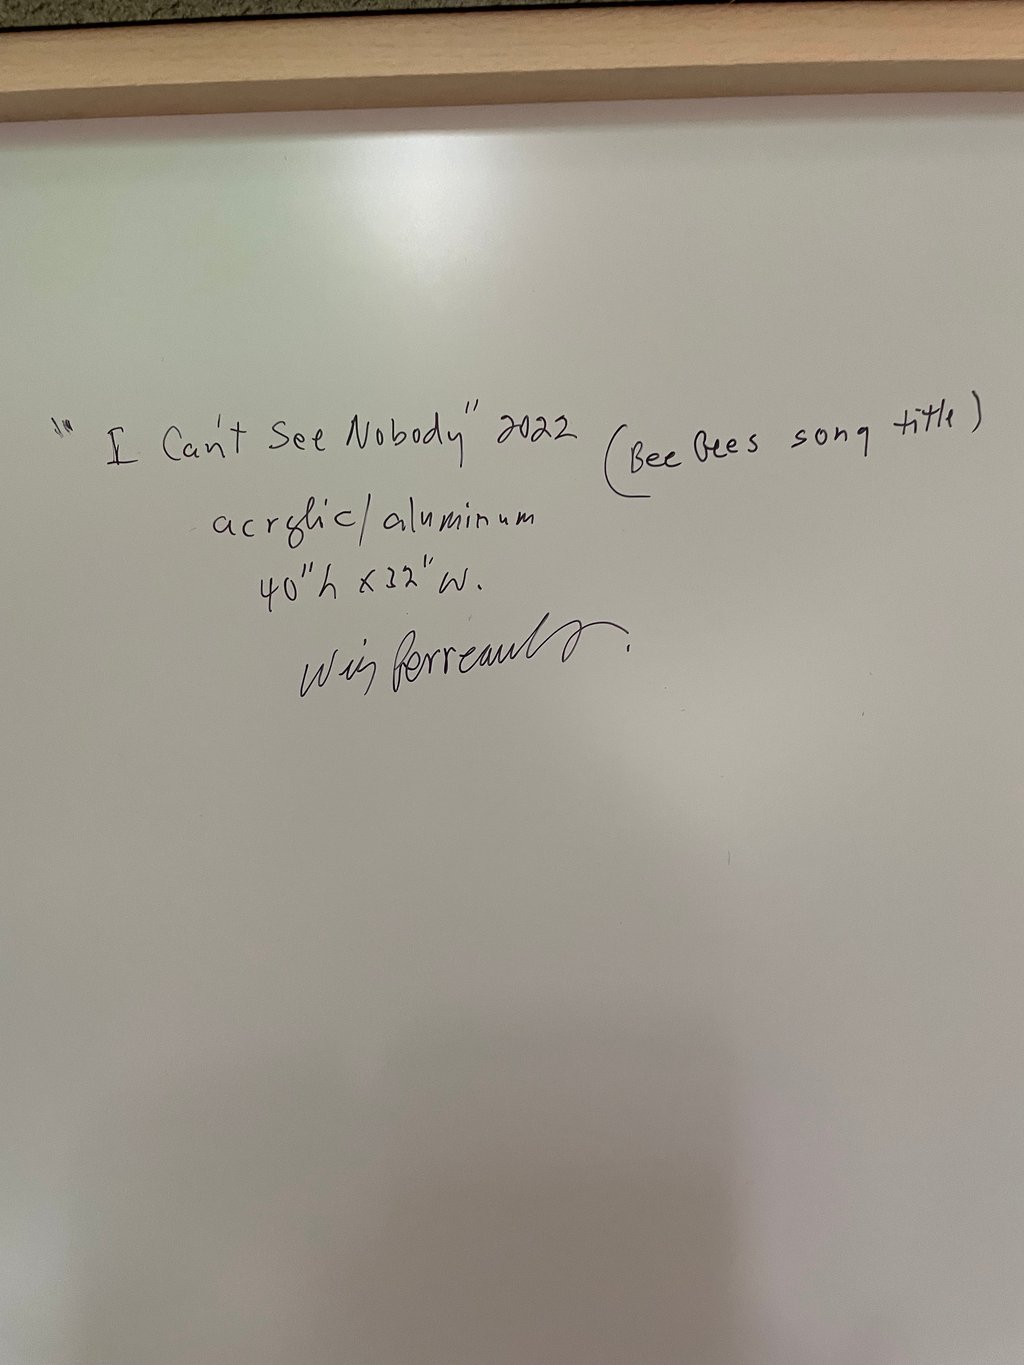 "I Can't See Nobody" 2022 (Bee Gees song title)
acrylic/aluminum
40"h x 32" w.
Perreault.